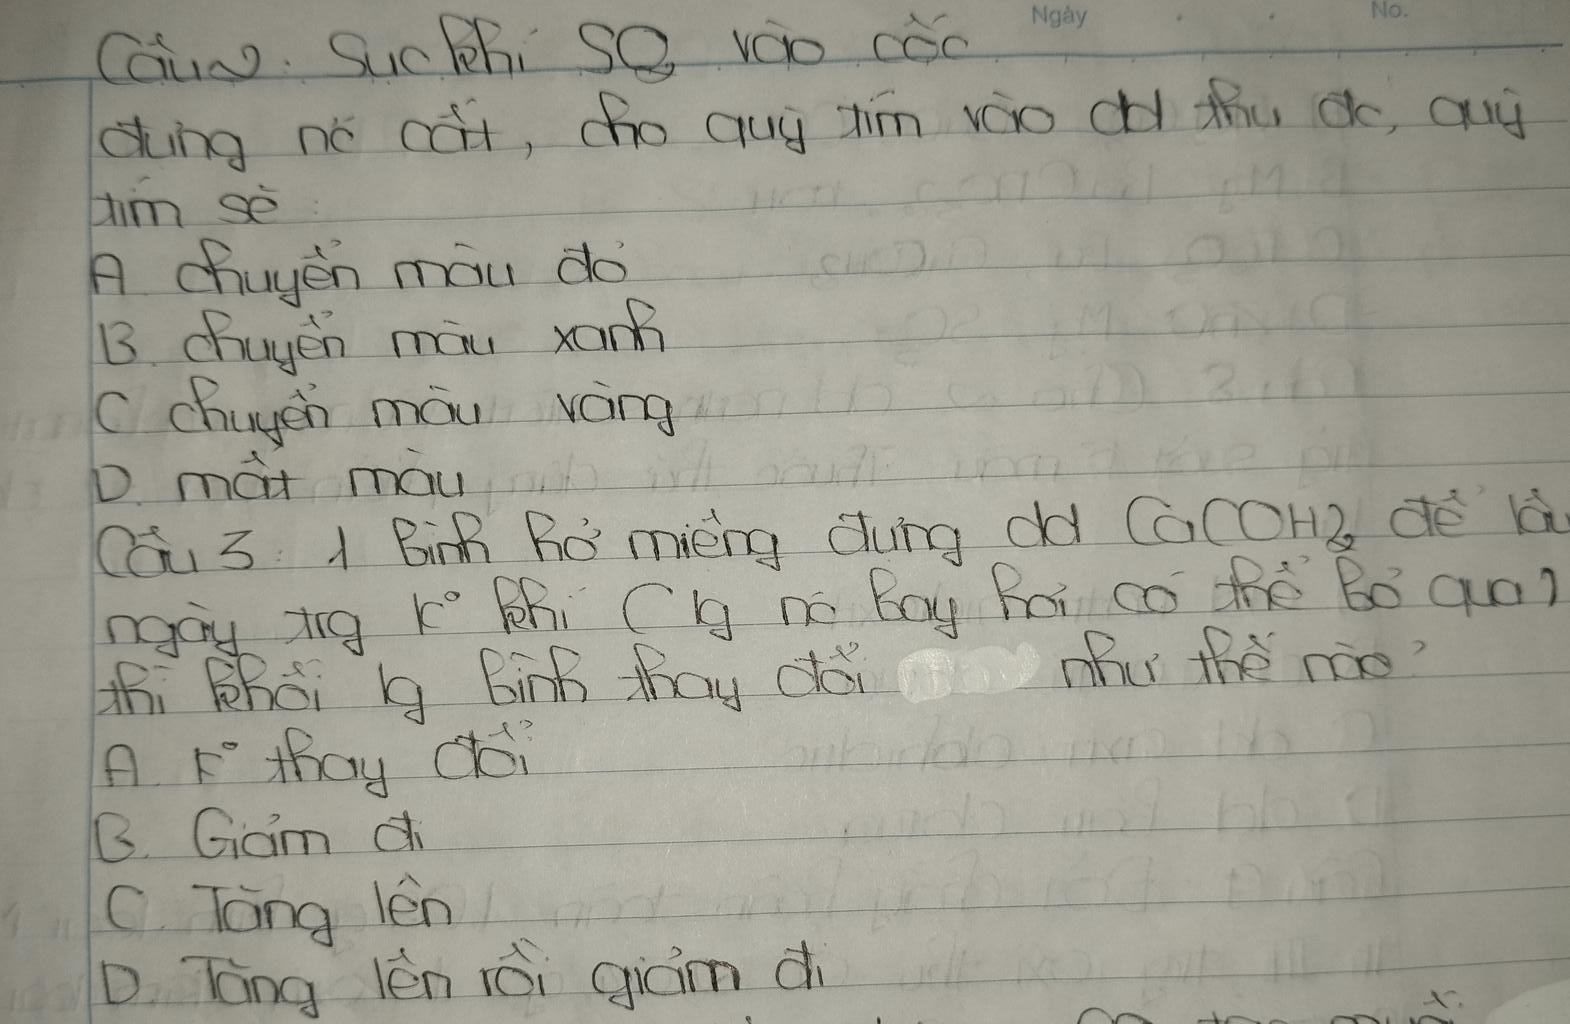 Ngày No.
Câu 2. Sục khí SO2 vào cốc
đựng nc cất, cho quỳ tím vào dd thu đc, quỳ
tím sẽ:
A chuyển màu đỏ
B. chuyển màu xanh
C chuyển màu vàng
D. mất màu
Câu 3: 1 bình hở miệng đựng dd Ca(OH)2 để lâu
ngày trg k° khí (lg nc bay hơi có thể bỏ qua)
thì khối lg bình thay đổi như thế nào?
A. k° thay đổi
B. Giảm đi
C. Tăng lên
D. Tăng lên rồi giảm đi